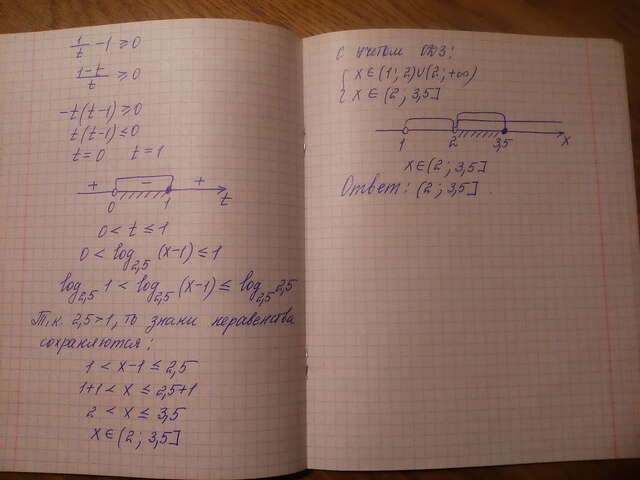 1/t - 1 ≥ 0
(1-t)/t ≥ 0
-t(t-1) ≥ 0
t(t-1) ≤ 0
t=0 t=1
+ - +
0 1 t
0 < t ≤ 1
0 < log_{2,5} (x-1) ≤ 1
log_{2,5} 1 < log_{2,5} (x-1) ≤ log_{2,5} 2,5
Т.к. 2,5>1, то знаки неравенства
сохраняются:
1 < x-1 ≤ 2,5
1+1 < x ≤ 2,5+1
2 < x ≤ 3,5
x∈(2; 3,5]
С учётом ОДЗ:
{ x∈(1; 2)∪(2; +∞)
x∈(2; 3,5]
1 2 3,5 x
x∈(2; 3,5]
Ответ: (2; 3,5].